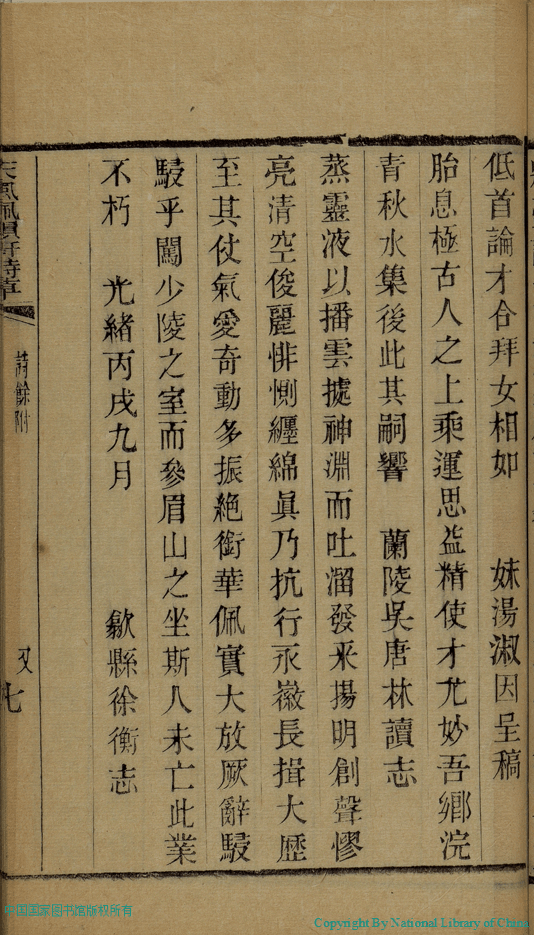 低首論才合拜女相如　妹湯淑因呈稿
胎息極古人之上乘運思益精使才尤妙吾鄉浣
青秋水集後此其嗣響　蘭陵吳唐林讀志
蒸靈液以播雲摅神淵而吐溜發采揚明創聲慘
亮清空俊麗悱惻纏綿眞乃抗行永徽長揖大歷
至其仗氣愛奇動多振絕銜華佩實大放厥辭駸
駸乎闖少陵之室而參眉山之坐斯人未亡此業
不朽　光緒丙戌九月　歙縣徐衡志
詩餘附
又
七
中国国家图书馆版权所有
Copyright By National Library of China